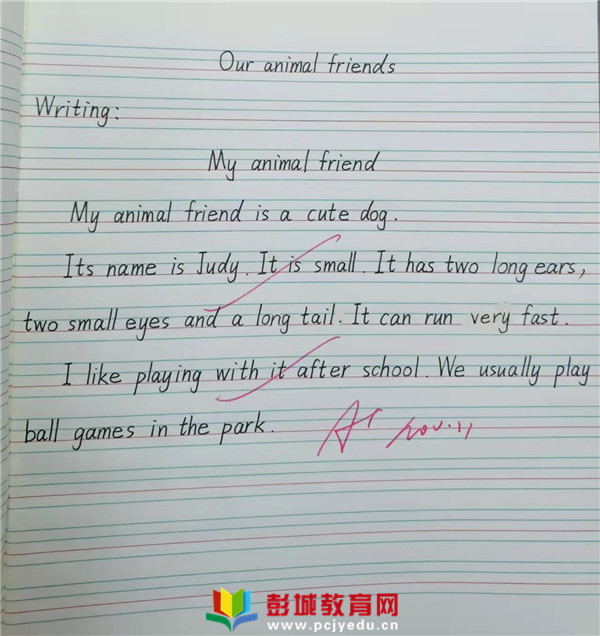 Our animal friends
Writing:
My animal friend
My animal friend is a cute dog.
Its name is Judy. It is small. It has two long ears,
two small eyes and a long tail. It can run very fast.
I like playing with it after school. We usually play
ball games in the park.
Nov. 11
彭城教育网
www.pcjyedu.cn